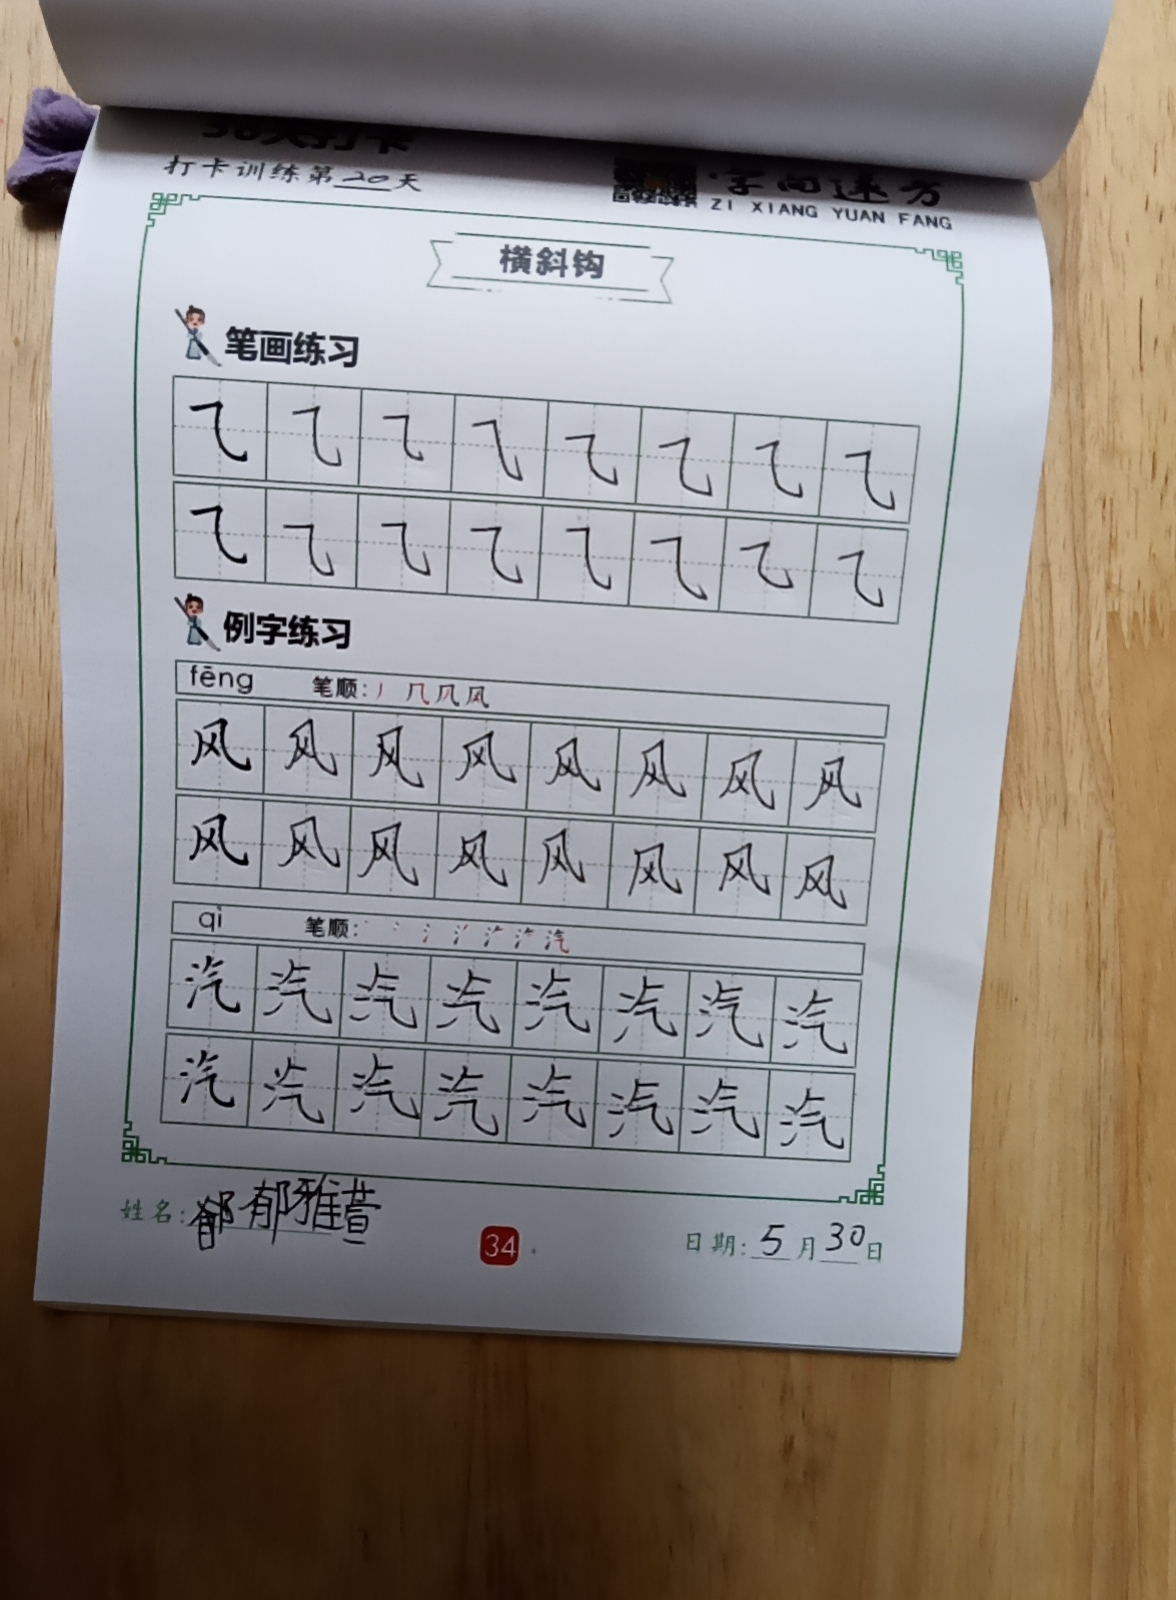 30天打卡
打卡训练第20天
字向远方
ZI XIANG YUAN FANG
横斜钩
笔画练习
⺄ ⺄ ⺄ ⺄ ⺄ ⺄ ⺄ ⺄
⺄ ⺄ ⺄ ⺄ ⺄ ⺄ ⺄ ⺄
例字练习
fēng 笔顺:
风 风 风 风 风 风 风 风
风 风 风 风 风 风 风 风
qì 笔顺:
汽 汽 汽 汽 汽 汽 汽 汽
汽 汽 汽 汽 汽 汽 汽 汽
姓名: 郁雅萱
34
日期: 5月30日